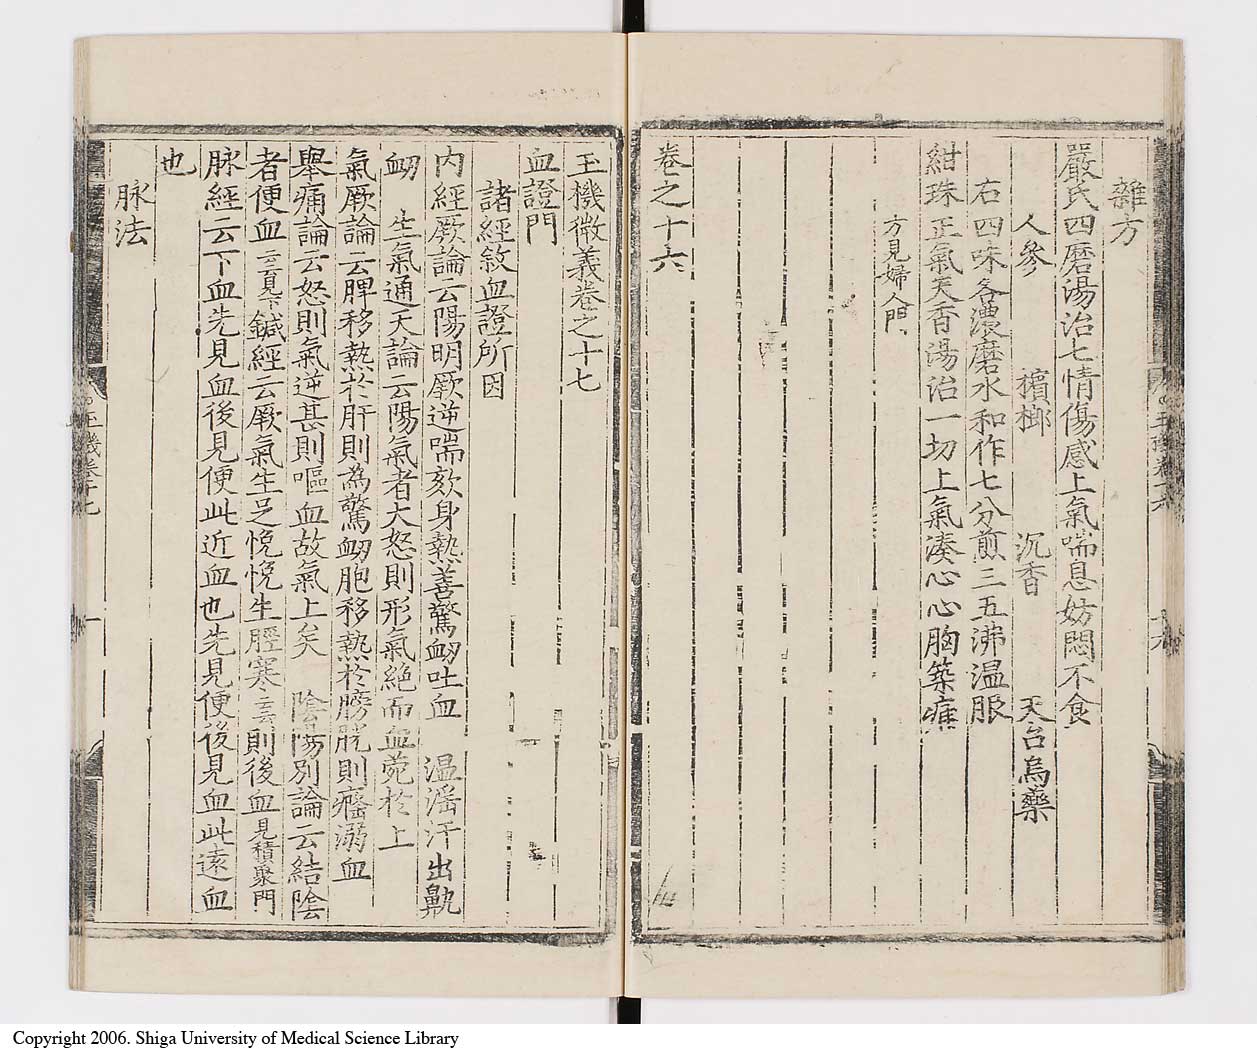 雜方
嚴氏四磨湯治七情傷感上氣喘息妨悶不食
人參　檳榔　沉香　天台烏藥
右四味各濃磨水和作七分煎三五沸温服
紺珠正氣天香湯治一切上氣湊心心胸築
方見婦人門
卷之十六
玉機微義卷之十七
血證門
諸經敘血證所因
内經厥論云陽明厥逆喘欬身熱善驚衂吐血　温淫汗出鼽
衂　生氣通天論云陽氣者大怒則形氣絶而血菀於上
氣厥論云脾移熱於肝則為驚衂胞移熱於膀胱則癃溺血
舉痛論云怒則氣逆甚則嘔血故氣上矣　陰陽別論云結陰
者便血云見下鍼經云厥氣生足悗悗生脛寒云云則後血見積聚門
脉經云下血先見血後見便此近血也先見便後見血此遠血
也
脉法
玉機卷十七
一
Copyright 2006. Shiga University of Medical Science Library